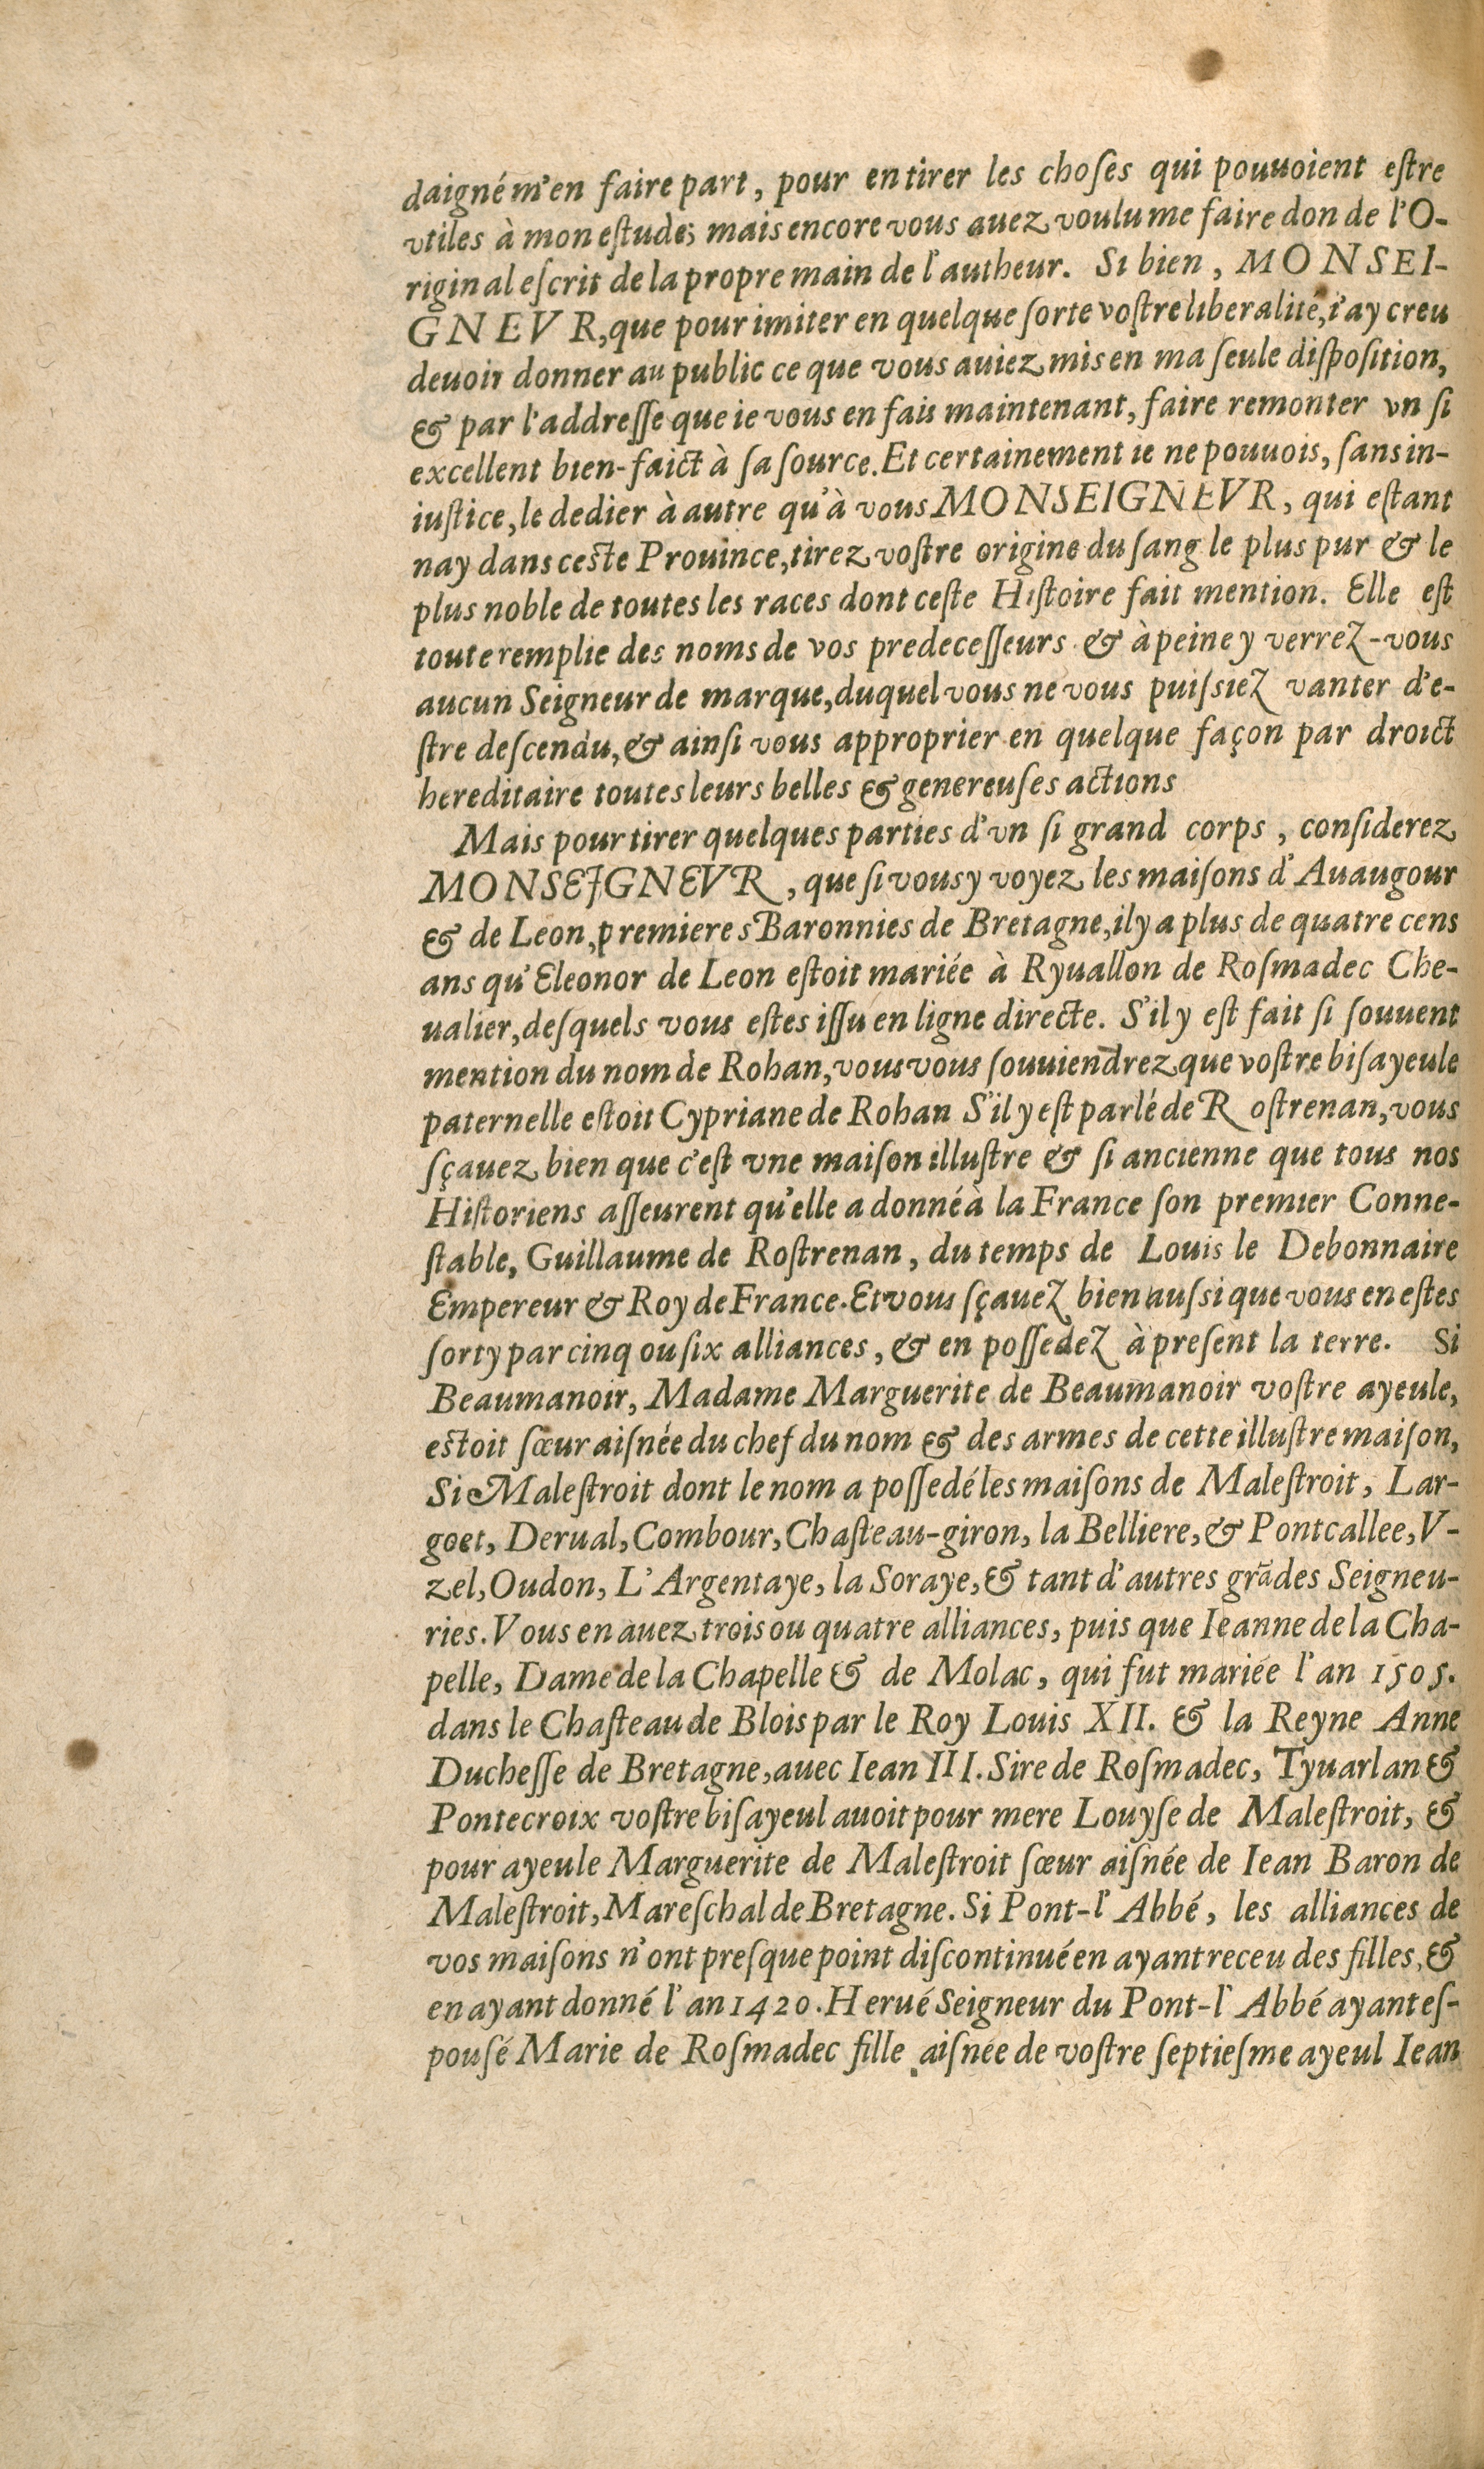 daigné m'en faire part, pour en tirer les choſes qui pouuoient eſtre
vtiles à mon eſtude; mais encore vous auez voulu me faire don de l'O-
riginal eſcrit de la propre main de l'autheur. Si bien, MONSEI-
GNEVR, que pour imiter en quelque ſorte voſtre liberalité, i'ay creu
deuoir donner au public ce que vous auiez mis en ma ſeule diſpoſition,
& par l'addreſſe que ie vous en fais maintenant, faire remonter vn ſi
excellent bien-faict à ſa ſource. Et certainement ie ne pouuois, ſans in-
iuſtice, le dedier à autre qu'à vous MONSEIGNEVR, qui eſtant
nay dans ceſte Prouince, tirez voſtre origine du ſang le plus pur & le
plus noble de toutes les races dont ceſte Hiſtoire fait mention. Elle eſt
toute remplie des noms de vos predeceſſeurs & à peine y verrez-vous
aucun Seigneur de marque, duquel vous ne vous puiſsiez vanter d'e-
ſtre deſcendu, & ainſi vous approprier en quelque façon par droict
hereditaire toutes leurs belles & genereuſes actions
Mais pour tirer quelques parties d'vn ſi grand corps, conſiderez
MONSEIGNEVR, que ſi vous y voyez les maiſons d'Auaugour
& de Leon, premieres Baronnies de Bretagne, il y a plus de quatre cens
ans qu'Eleonor de Leon eſtoit mariée à Ryuallon de Roſmadec Che-
ualier, deſquels vous eſtes iſſu en ligne directe. S'il y eſt fait ſi ſouuent
mention du nom de Rohan, vous vous ſouuiendrez que voſtre biſayeule
paternelle eſtoit Cypriane de Rohan S'il y eſt parlé de Roſtrenan, vous
ſçauez bien que c'eſt vne maiſon illuſtre & ſi ancienne que tous nos
Hiſtoriens aſſeurent qu'elle a donné à la France ſon premier Conne-
ſtable, Guillaume de Roſtrenan, du temps de Louis le Debonnaire
Empereur & Roy de France. Et vous ſçauez bien auſsi que vous en eſtes
ſorty par cinq ou ſix alliances, & en poſſedez à preſent la terre. Si
Beaumanoir, Madame Marguerite de Beaumanoir voſtre ayeule,
eſtoit ſœur aiſnée du chef du nom & des armes de cette illuſtre maiſon,
Si Maleſtroit dont le nom a poſſedé les maiſons de Maleſtroit, Lar-
goet, Derual, Combour, Chaſteau-giron, la Belliere, & Pontcallee, V-
zel, Oudon, L'Argentaye, la Soraye, & tant d'autres grãdes Seigneu-
ries. Vous en auez trois ou quatre alliances, puis que Ieanne de la Cha-
pelle, Dame de la Chapelle & de Molac, qui fut mariée l'an 1505.
dans le Chaſteau de Blois par le Roy Louis XII. & la Reyne Anne
Ducheſſe de Bretagne, auec Iean III. Sire de Roſmadec, Tyuarlan &
Pontecroix voſtre biſayeul auoit pour mere Louyſe de Maleſtroit, &
pour ayeule Marguerite de Maleſtroit ſœur aiſnée de Iean Baron de
Maleſtroit, Mareſchal de Bretagne. Si Pont-l'Abbé, les alliances de
vos maiſons n'ont preſque point diſcontinué en ayant receu des filles, &
en ayant donné l'an 1420. Herué Seigneur du Pont-l'Abbé ayant eſ-
pouſé Marie de Roſmadec fille aiſnée de voſtre ſeptieſme ayeul Iean